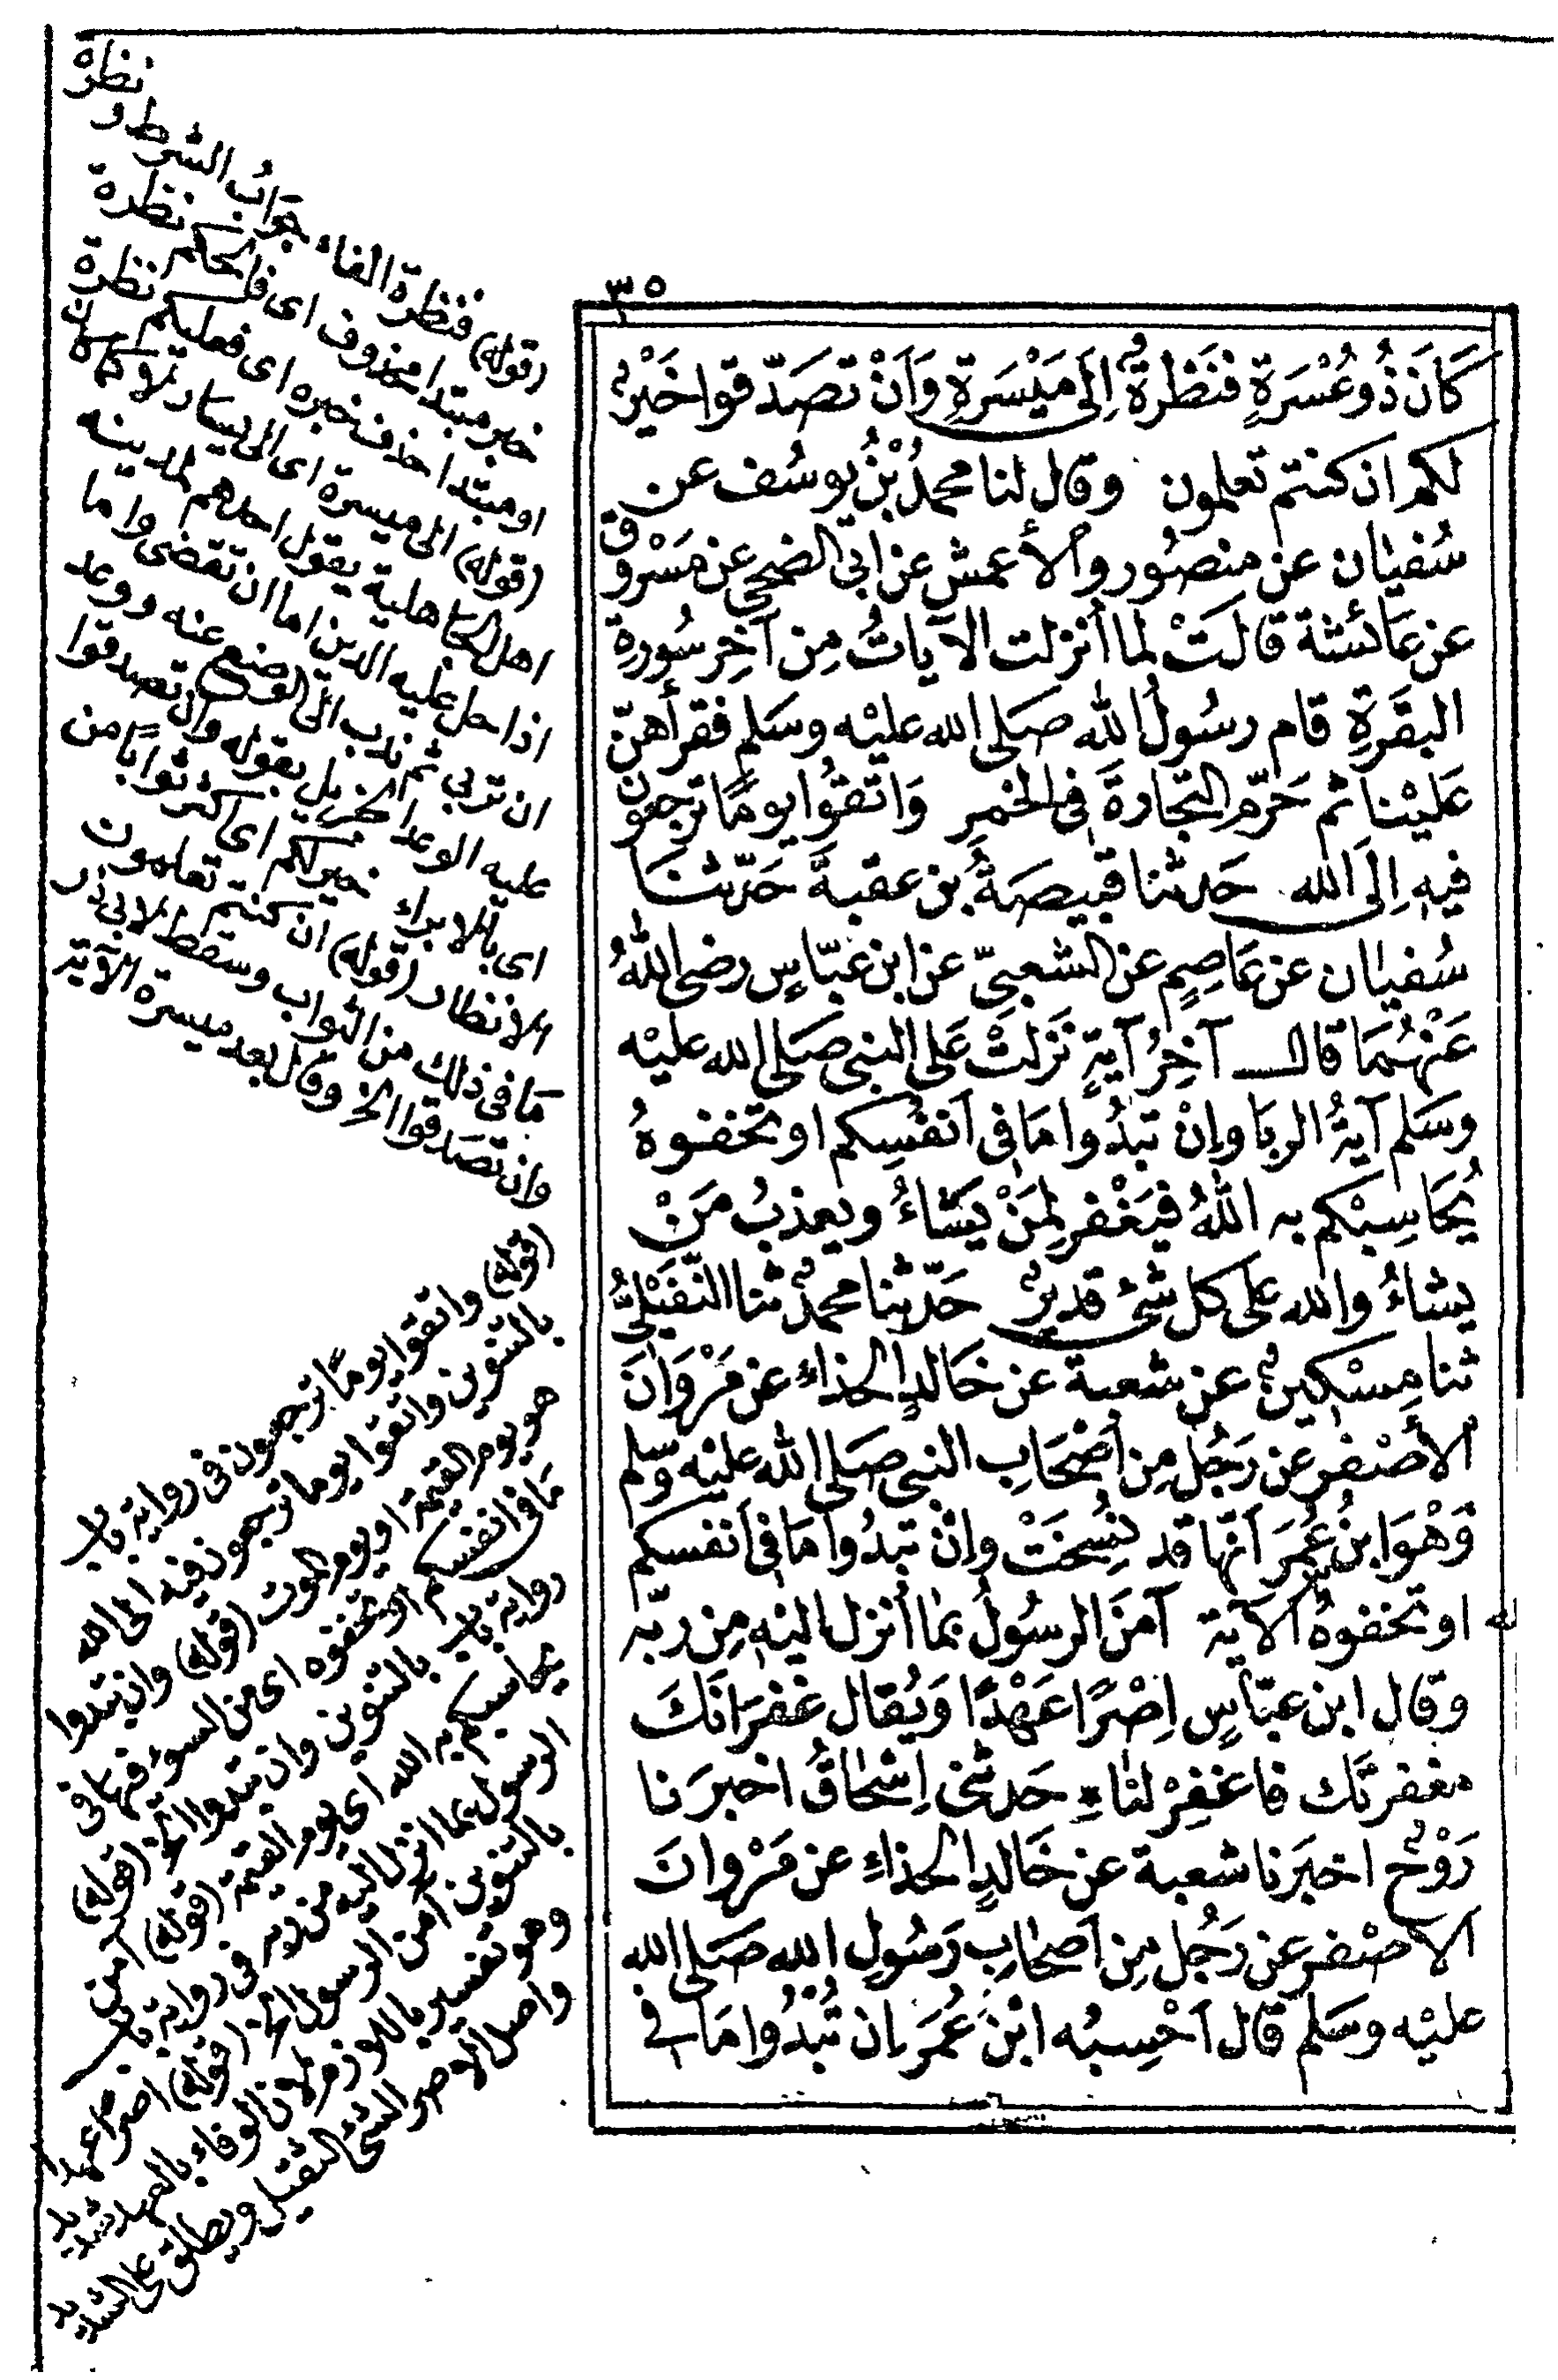 ٣٥
كَانَ ذُو عُسْرَةٍ فنَظِرةٌ اِلَى مَيْسَرَةٍ وَاَنْ تصَدّقوا خَيْرٌ
لكم ان كنتم تعلمون وقال لنا محمدُ بْنُ يوسُف عن
سُفيان عن منصُور والأعمش عن ابى الضحى عن مَسْروق
عن عَائشة قالَتْ لما أنزلت الآياتُ مِن آخِر سُورةِ
البقَرةِ قام رسُولُ الله صَلى الله عليْه وسَلم فقرأهنّ
عَليْنا ثم حَرّم التجارةَ فى الخمرِ وَاتقُوا يومًا ترجعون
فيهِ اِلَى الله حَدثنا قبيصَةُ بن عقبةَ حَدّثنَا
سُفيان عن عَاصِمٍ عن الشعبىّ عن ابن عَبّاسٍ رضى اللهُ
عَنْهُمَا قال آخِرُ آيةٍ نَزلتْ عَلى النبى صَلى الله عليْه
وسَلم آيةُ الربَا وإنْ تبدُوا مَا فى اَنفُسِكم او تخفوهُ
يُحَاسِبْكم به اللهُ فيَغْفر لِمَنْ يَشَاءُ ويعذبُ مَنْ
يشاءُ والله على كل شئ قديرٌ حَدّثنا محمدٌ ثنا النّفَيْلىُّ
ثنا مِسْكينٌ عن شعبة عن خَالدٍ الحذاءِ عن مَرْوَانَ
الأصْفر عن رَجُل مِن اَصْحَابِ النبى صَلى الله عليْه وسّلم
وَهْوَ ابنُ عُمَرَ اَنّها قد نُسِخَتْ وإنْ تبدُوا مَا فى اَنفسكم
او تخفوهُ الآية آمَنَ الرسُولُ بما أُنزل اليْهِ مِن ربّه
وقال ابن عبّاسٍ اِصْرًا عَهْدًا وَيُقال غفرَانَكَ
مغفرتَك فاغفِرْ لنا حَدثنى اِسْحَاقُ اخبرَنا
رَوْحٌ اخبَرنا شعبة عن خَالدٍ الحذاءِ عن مَرْوانَ
الاصْفر عن رَجُل مِن اَصْحَابِ رَسُولِ الله صَلى الله
عليْه وسَلم قال اَحْسِبُه ابنَ عُمَرَ اِن تُبْدُوا مَا فى
(قوله) فنظرة الفاء جوابُ الشرط و نظرة
خبر مبتدا محذوف اى فالحكم نظرة
او مبتدا حذف خبره اى فعليكم نظرة
(قوله) الى ميسرة اى الى يسار لا كما كان
اهل الجاهلية يقول احدهم لمدينه
اذا حل عليه الدين اما ان تقضى واما
ان تربى ثم ندب الى الوضع عنه ووعد
عليه الوعد الجزيل بقوله وان تصدقوا
اى بالابراء خير لكم اى اكثر ثوابا من
الانظار (قوله) ان كنتم تعلمون
مَا فى ذلك من الثواب وسقط لابى ذر
وان تصَدقوا الخ وقال بعد ميسرة الآية
(قوله) واتقوا يومًا ترجعون فى رواية باب
بالتنوين واتقوا يوما ترجعون فيه الى الله
هو يوم القيمة او يوم الموت (قوله) وان تبدوا
مَا فى انفسكم او تخفوه اى من السوء فيها فى
رواية باب بالتنوين وان تبدوا الخ (قوله)
يحاسبكم به الله اى يوم القيمة (قوله) آمن
الرسول بما انزل اليه من ربه فى رواية باب
بالتنوين آمن الرسول الخ (قوله) اصرًا عهدا
وهو تفسير باللازم لان الوفاء بالعهد شديد
واصل الاصر الشئ الثقيل ويطلق على الشديد